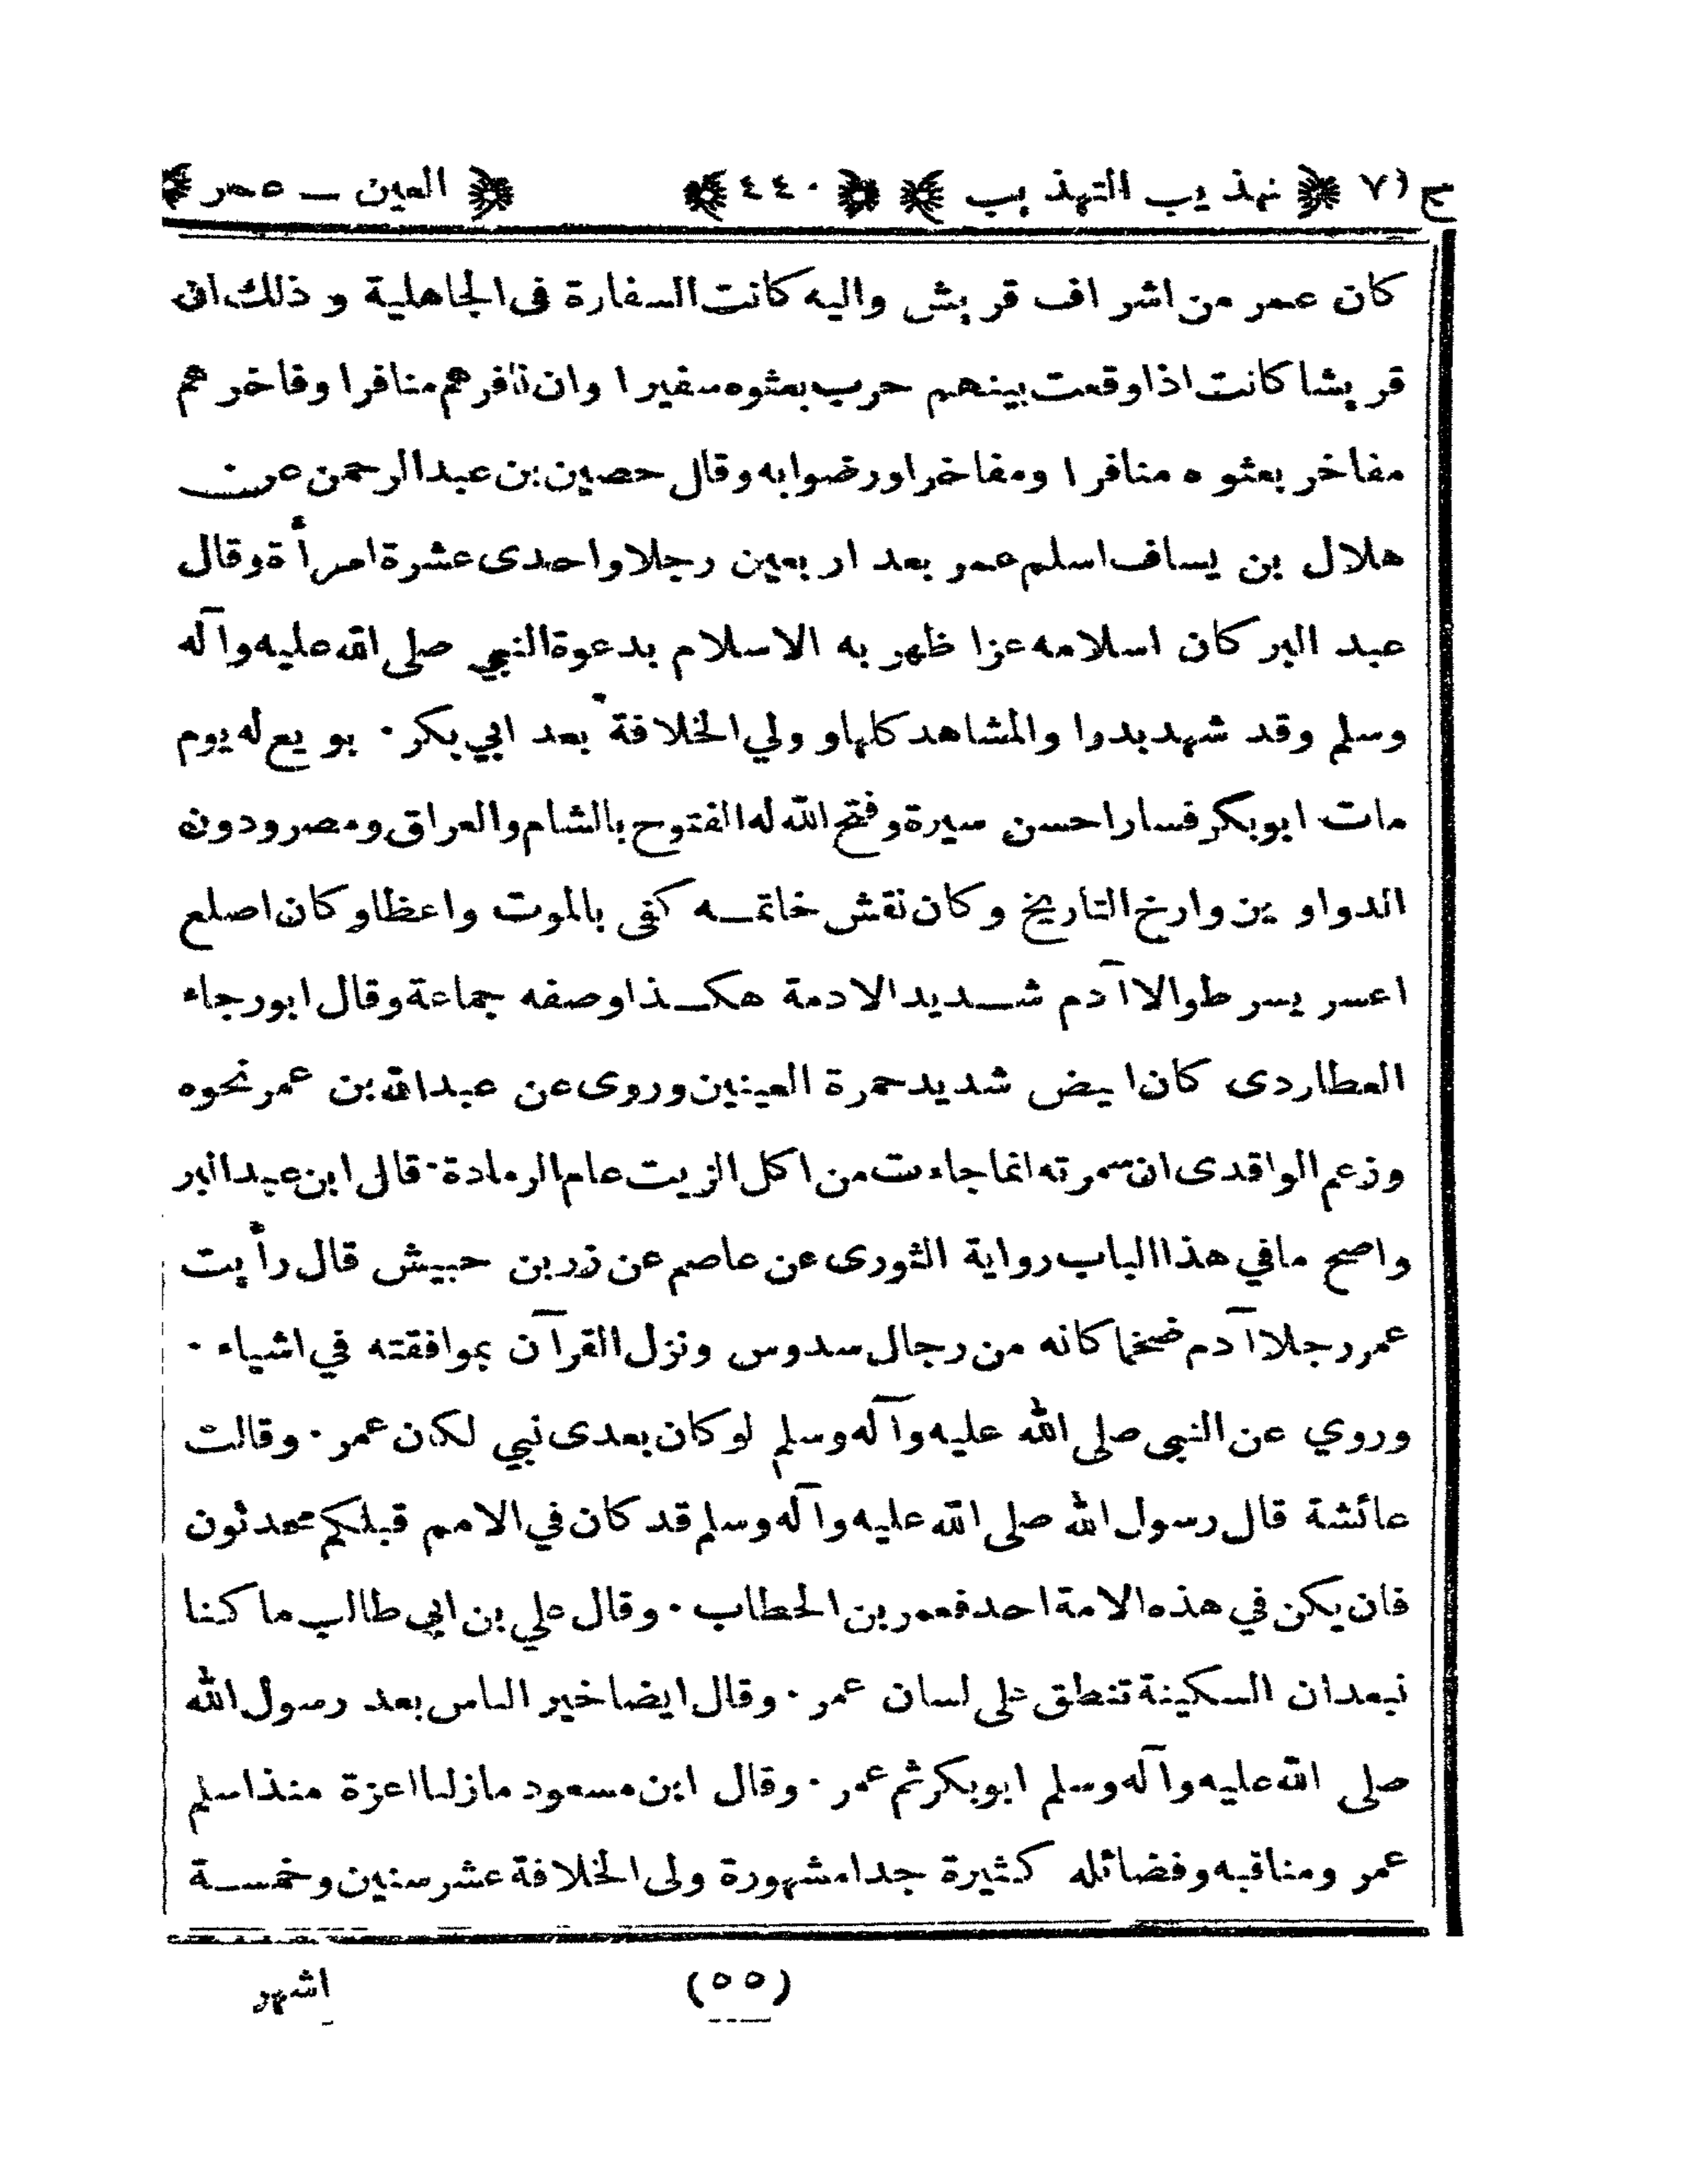 ج (٧) تهذيب التهذيب ٤٤٠ العين — عمر
كان عمر من اشراف قريش واليه كانت السفارة فى الجاهلية و ذلك ان
قريشا كانت اذا وقعت بينهم حرب بعثوه سفيرا وان نافرهم منافر ا وفاخرهم
مفاخر بعثوه منافرا ومفاخرا ورضوا به وقال حصين بن عبد الرحمن عن
هلال بن يساف اسلم عمر بعد اربعين رجلا واحدى عشرة امرأة وقال
عبد البر كان اسلامه عزا ظهر به الاسلام بدعوة النبي صلى الله عليه وآله
وسلم وقد شهد بدرا والمشاهد كلها و ولي الخلافة بعد ابي بكر · بويع له يوم
مات ابو بكر فسار احسن سيرة وفتح الله له الفتوح بالشام والعراق ومصر ودون
الدواوين وارخ التاريخ وكان نقش خاتمه كفى بالموت واعظا وكان اصلع
اعسر يسر طوالا آدم شديد الادمة هكذا وصفه جماعة وقال ابو رجاء
العطاردى كان ابيض شديد حمرة العينين وروى عن عبد الله بن عمر نحوه
وزعم الواقدى ان سمرته انما جاءت من اكل الزيت عام الرمادة · قال ابن عبد البر
واصح مافي هذا الباب رواية الثورى عن عاصم عن زر بن حبيش قال رأيت
عمر رجلا آدم ضخما كانه من رجال سدوس ونزل القرآن بموافقته في اشياء ·
وروي عن النبي صلى الله عليه وآله وسلم لو كان بعدى نبي لكان عمر · وقالت
عائشة قال رسول الله صلى الله عليه وآله وسلم قد كان في الامم قبلكم محدثون
فان يكن في هذه الامة احد فعمر بن الخطاب · وقال علي بن ابي طالب ما كنا
نبعد ان السكينة تنطق على لسان عمر · وقال ايضا خير الناس بعد رسول الله
صلى الله عليه وآله وسلم ابو بكر ثم عمر · وقال ابن مسعود مازلنا اعزة منذ اسلم
عمر ومناقبه وفضائله كثيرة جدا مشهورة ولى الخلافة عشر سنين وخمسة
(٥٥) اشهر